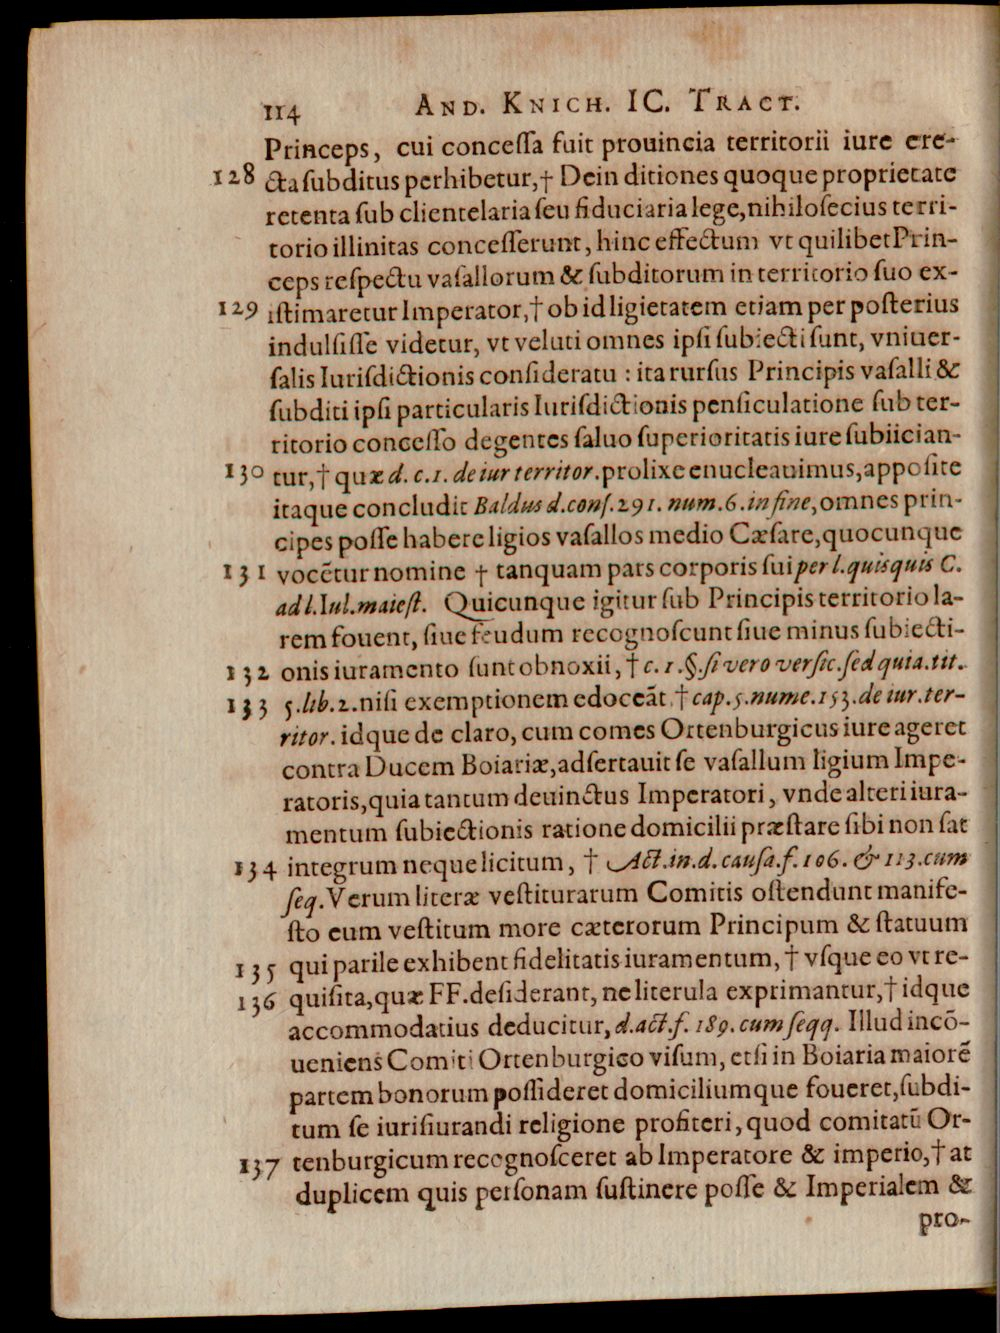 114 AND. KNICH. IC. TRACT.
Princeps, cui conceſſa fuit prouincia territorii iure ere-
128 cta ſubditus perhibetur, † Dein ditiones quoque proprietate
retenta ſub clientelaria ſeu fiduciaria lege, nihiloſecius terri-
torio illinitas conceſſerunt, hinc effectum vt quilibet Prin-
ceps reſpectu vaſallorum & ſubditorum in territorio ſuo ex-
129 iſtimaretur Imperator, † ob id ligietatem etiam per poſterius
indulſiſſe videtur, vt veluti omnes ipſi ſubiecti ſunt, vniuer-
ſalis Iuriſdictionis conſideratu : ita rurſus Principis vaſalli &
ſubditi ipſi particularis Iuriſdictionis penſiculatione ſub ter-
ritorio conceſſo degentes ſaluo ſuperioritatis iure ſubiician-
130 tur, † quæ d. c. 1. de iur territor. prolixe enucleauimus, appoſite
itaque concludit Baldus d. conſ. 291. num. 6. in fine, omnes prin-
cipes poſſe habere ligios vaſallos medio Cæſare, quocunque
131 vocẽtur nomine † tanquam pars corporis ſui per l. quisquis C.
ad l. Iul. maieſt. Quicunque igitur ſub Principis territorio la-
rem fouent, ſiue feudum recognoſcunt ſiue minus ſubiecti-
132 onis iuramento ſunt obnoxii, † c. 1. §. ſi vero verſic. ſed quia. tit.
133 5. lib. 2. niſi exemptionem edoceãt † cap. 5. nume. 153. de iur. ter-
ritor. idque de claro, cum comes Ortenburgicus iure ageret
contra Ducem Boiariæ, adſertauit ſe vaſallum ligium Impe-
ratoris, quia tantum deuinctus Imperatori, vnde alteri iura-
mentum ſubiectionis ratione domicilii præſtare ſibi non ſat
134 integrum neque licitum, † Act. in. d. cauſa. f. 106. & 113. cum
ſeq. Verum literæ veſtiturarum Comitis oſtendunt manife-
ſto eum veſtitum more cæterorum Principum & ſtatuum
135 qui parile exhibent fidelitatis iuramentum, † vſque eo vt re-
136 quiſita, quæ FF. deſiderant, ne literula exprimantur, † idque
accommodatius deducitur, d. act. f. 189. cum ſeqq. Illud incõ-
ueniens Comiti Ortenburgico viſum, etſi in Boiaria maiorẽ
partem bonorum poſſideret domiciliumque foueret, ſubdi-
tum ſe iuriſiurandi religione profiteri, quod comitatũ Or-
137 tenburgicum recognoſceret ab Imperatore & imperio, † at
duplicem quis perſonam ſuſtinere poſſe & Imperialem &
pro-